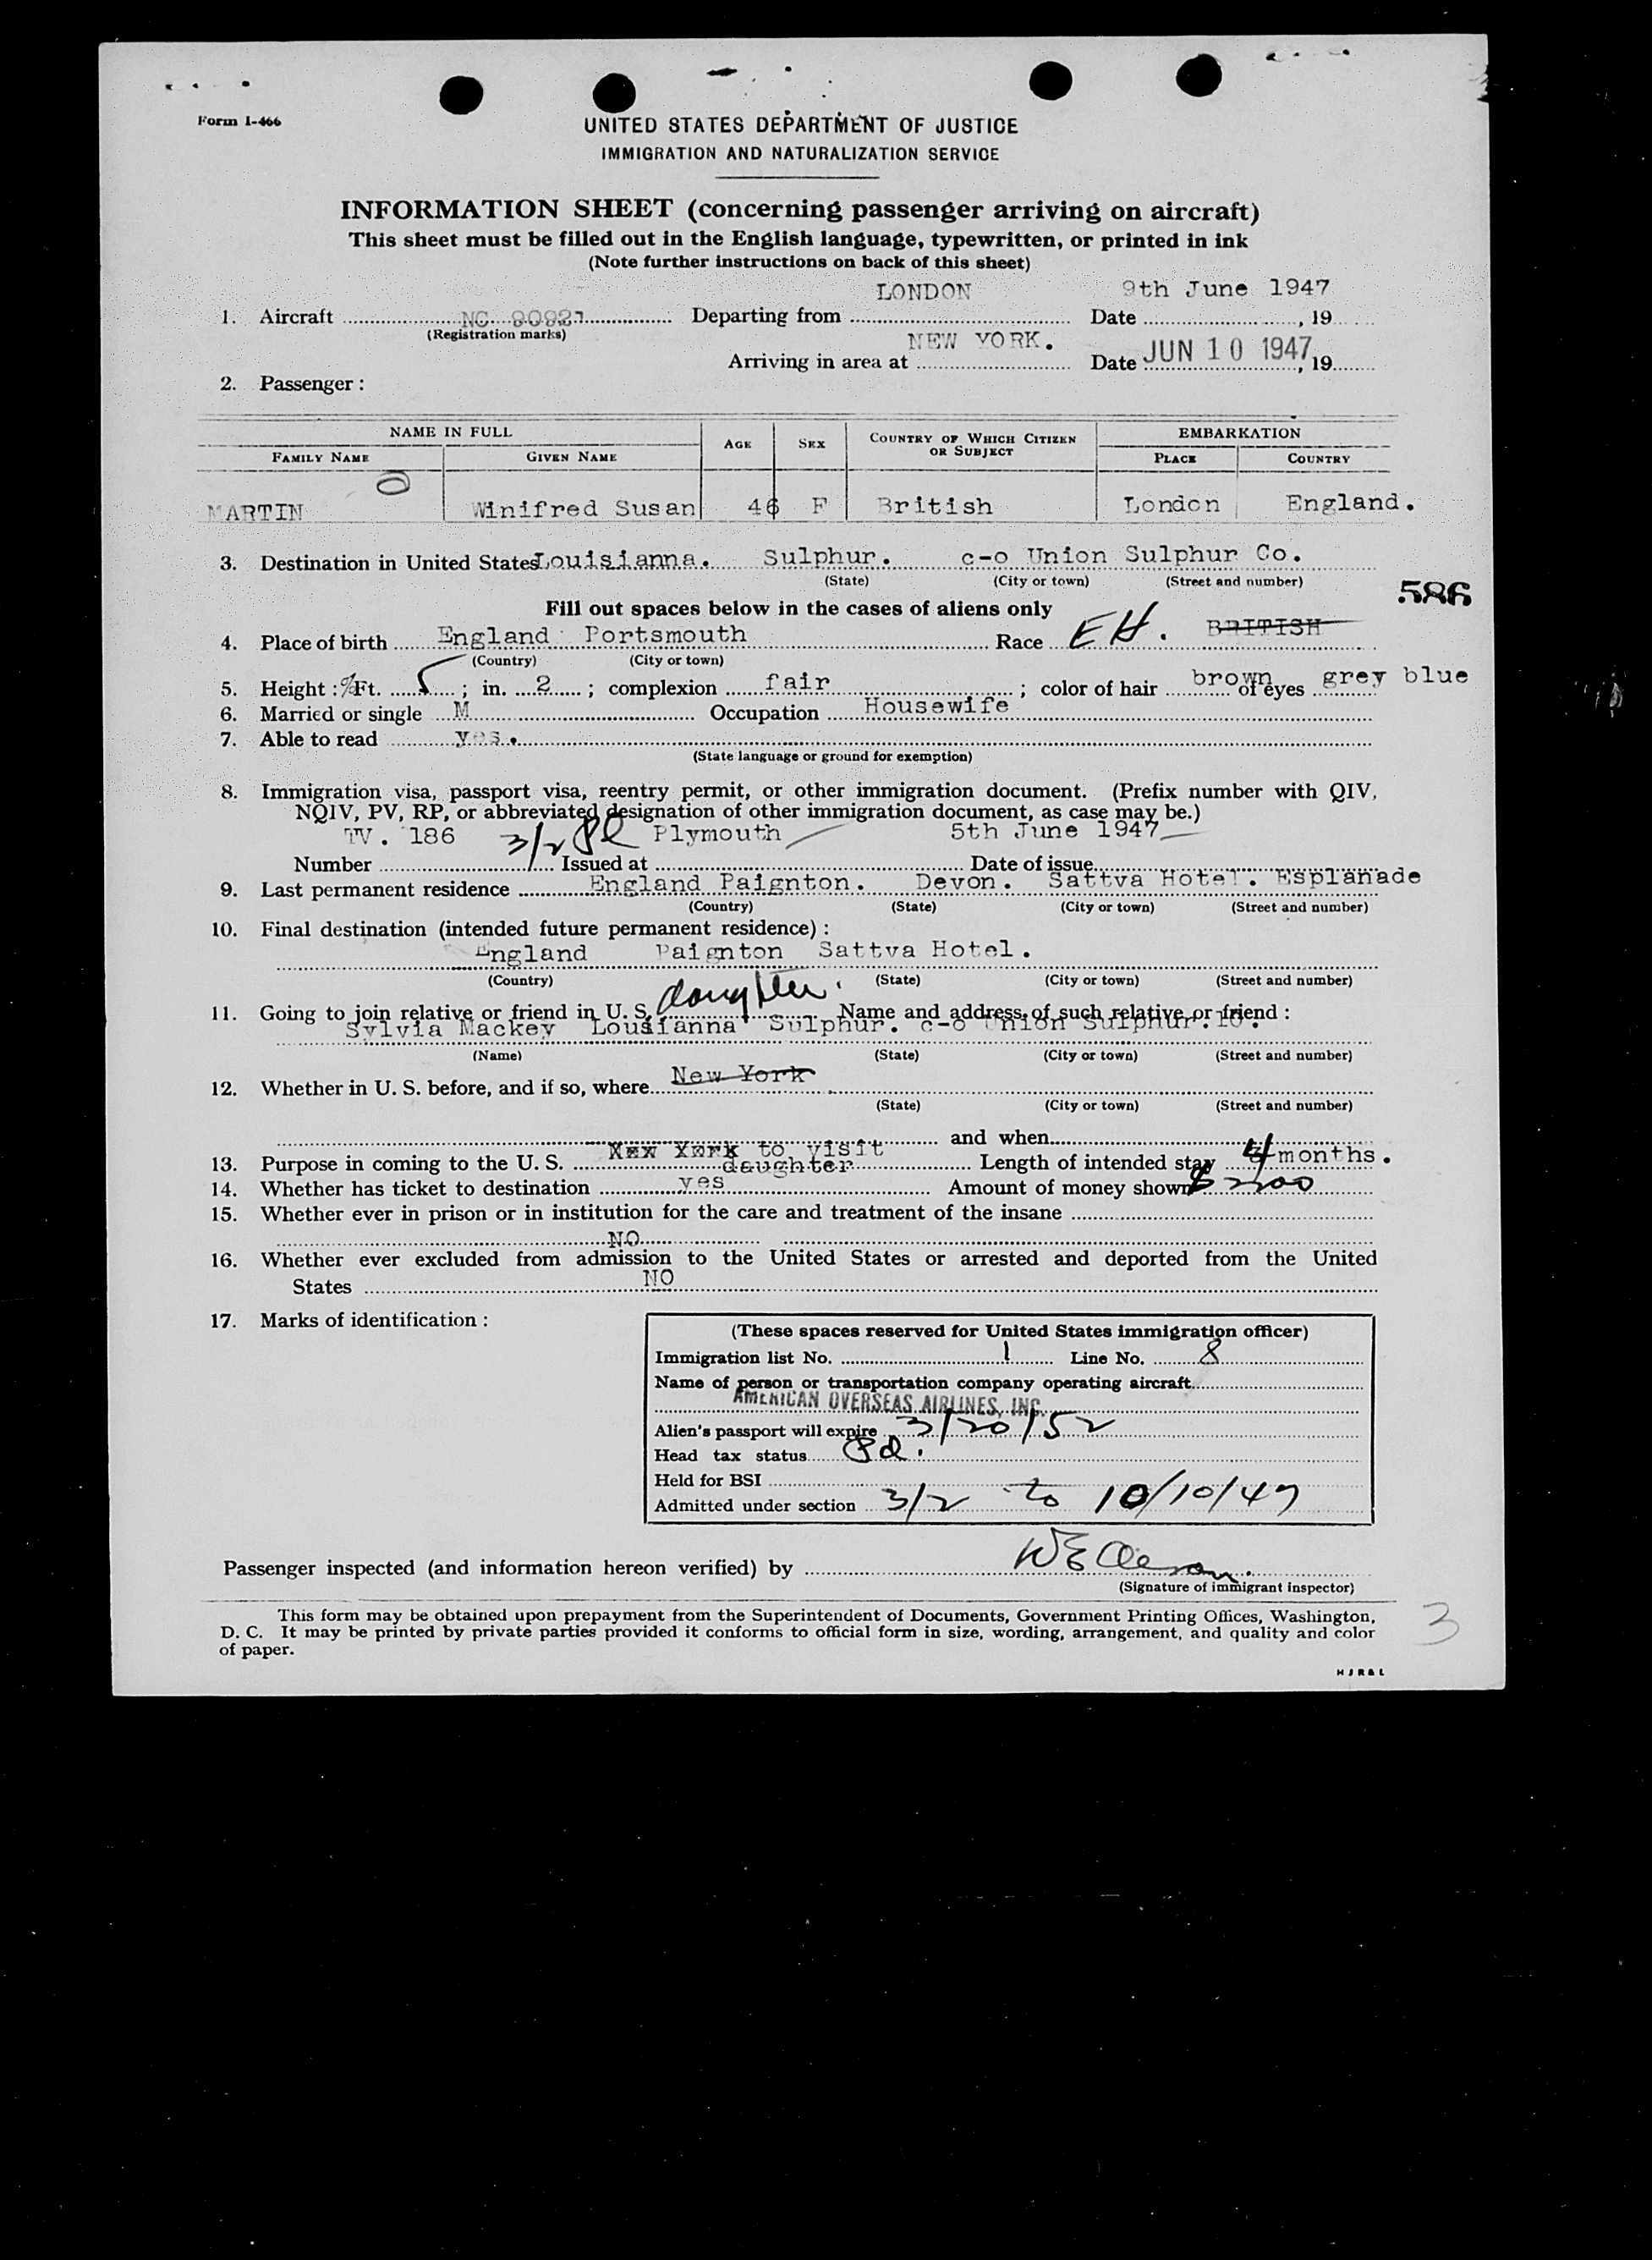 Form I-466
UNITED STATES DEPARTMENT OF JUSTICE
IMMIGRATION AND NATURALIZATION SERVICE
INFORMATION SHEET (concerning passenger arriving on aircraft)
This sheet must be filled out in the English language, typewritten, or printed in ink
(Note further instructions on back of this sheet)
LONDON 9th June 1947
1. Aircraft NC. 90927 Departing from Date , 19
(Registration marks)
NEW YORK.
Arriving in area at Date JUN 10 1947, 19
2. Passenger :
NAME IN FULL AGE SEX COUNTRY OF WHICH CITIZEN OR SUBJECT EMBARKATION
FAMILY NAME GIVEN NAME PLACE COUNTRY
MARTIN Winifred Susan 46 F British London England.
3. Destination in United States Louisianna. Sulphur. c-o Union Sulphur Co.
(State) (City or town) (Street and number)
586
Fill out spaces below in the cases of aliens only
4. Place of birth England Portsmouth Race EH. BRITISH
(Country) (City or town)
5. Height : Ft. 5 ; in. 2 ; complexion fair ; color of hair brown of eyes grey blue
6. Married or single M Occupation Housewife
7. Able to read yes.
(State language or ground for exemption)
8. Immigration visa, passport visa, reentry permit, or other immigration document. (Prefix number with QIV,
NQIV, PV, RP, or abbreviated designation of other immigration document, as case may be.)
TV. 186 3/2 Plymouth 5th June 1947
Number Issued at Date of issue
9. Last permanent residence England Paignton. Devon. Sattva Hotel. Esplanade
(Country) (State) (City or town) (Street and number)
10. Final destination (intended future permanent residence) :
England Paignton Sattva Hotel.
(Country) (State) (City or town) (Street and number)
11. Going to join relative or friend in U. S. daughter. Name and address of such relative or friend :
Sylvia Mackey Lousianna Sulphur. c-o Union Sulphur.
(Name) (State) (City or town) (Street and number)
12. Whether in U. S. before, and if so, where New York
(State) (City or town) (Street and number)
and when
13. Purpose in coming to the U. S. New York to visit daughter Length of intended stay 4 months.
14. Whether has ticket to destination yes Amount of money shown $200
15. Whether ever in prison or in institution for the care and treatment of the insane
NO
16. Whether ever excluded from admission to the United States or arrested and deported from the United
States NO
17. Marks of identification :
(These spaces reserved for United States immigration officer)
Immigration list No. 1 Line No. 8
Name of person or transportation company operating aircraft
AMERICAN OVERSEAS AIRLINES, INC.
Alien's passport will expire 3/20/52
Head tax status Pd.
Held for BSI
Admitted under section 3/2 to 10/10/47
Passenger inspected (and information hereon verified) by
(Signature of immigrant inspector)
This form may be obtained upon prepayment from the Superintendent of Documents, Government Printing Offices, Washington,
D. C. It may be printed by private parties provided it conforms to official form in size, wording, arrangement, and quality and color
of paper.
3
HJR&L